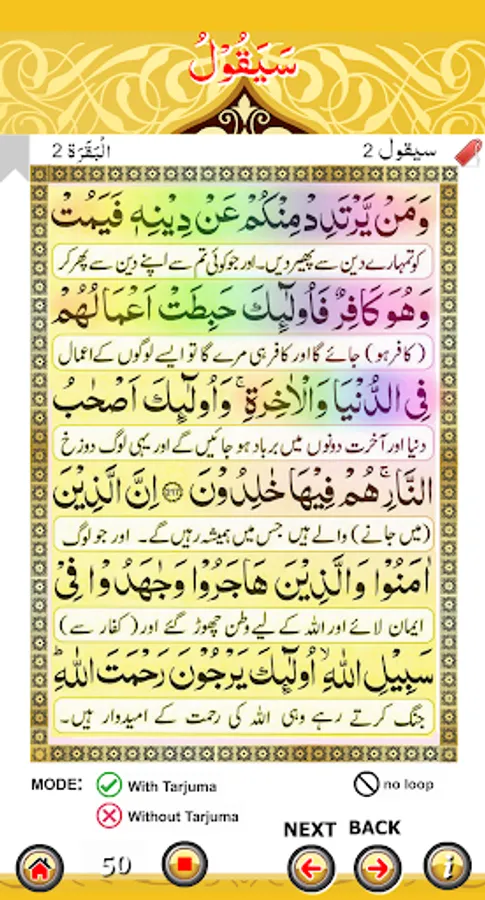 سَيَقُوْلُ
سيقول 2 اَلْبَقَرَة 2
وَمَنْ يَّرْتَدِدْ مِنْكُمْ عَنْ دِيْنِهٖ فَيَمُتْ
کو تمہارے دین سے پھیر دیں۔ اور جو کوئی تم سے اپنے دین سے پھر کر
وَهُوَ كَافِرٌ فَاُولٰٓئِكَ حَبِطَتْ اَعْمَالُهُمْ
(کافر ہو) جائے گا اور کافر ہی مرے گا تو ایسے لوگوں کے اعمال
فِى الدُّنْيَا وَالْاٰخِرَةِ ۚ وَاُولٰٓئِكَ اَصْحٰبُ
دنیا اور آخرت دونوں میں برباد ہو جائیں گے اور یہی لوگ دوزخ
النَّارِ ۚ هُمْ فِيْهَا خٰلِدُوْنَ ۝ اِنَّ الَّذِيْنَ
(میں جانے) والے ہیں جس میں ہمیشہ رہیں گے۔ اور جو لوگ
اٰمَنُوْا وَالَّذِيْنَ هَاجَرُوْا وَجٰهَدُوْا فِىْ
ایمان لائے اور اللہ کے لیے وطن چھوڑ گئے اور (کفار سے)
سَبِيْلِ اللّٰهِ ۙ اُولٰٓئِكَ يَرْجُوْنَ رَحْمَتَ اللّٰهِ ؕ
جنگ کرتے رہے وہی اللہ کی رحمت کے امیدوار ہیں۔
MODE: With Tarjuma no loop
Without Tarjuma
NEXT BACK
50 i